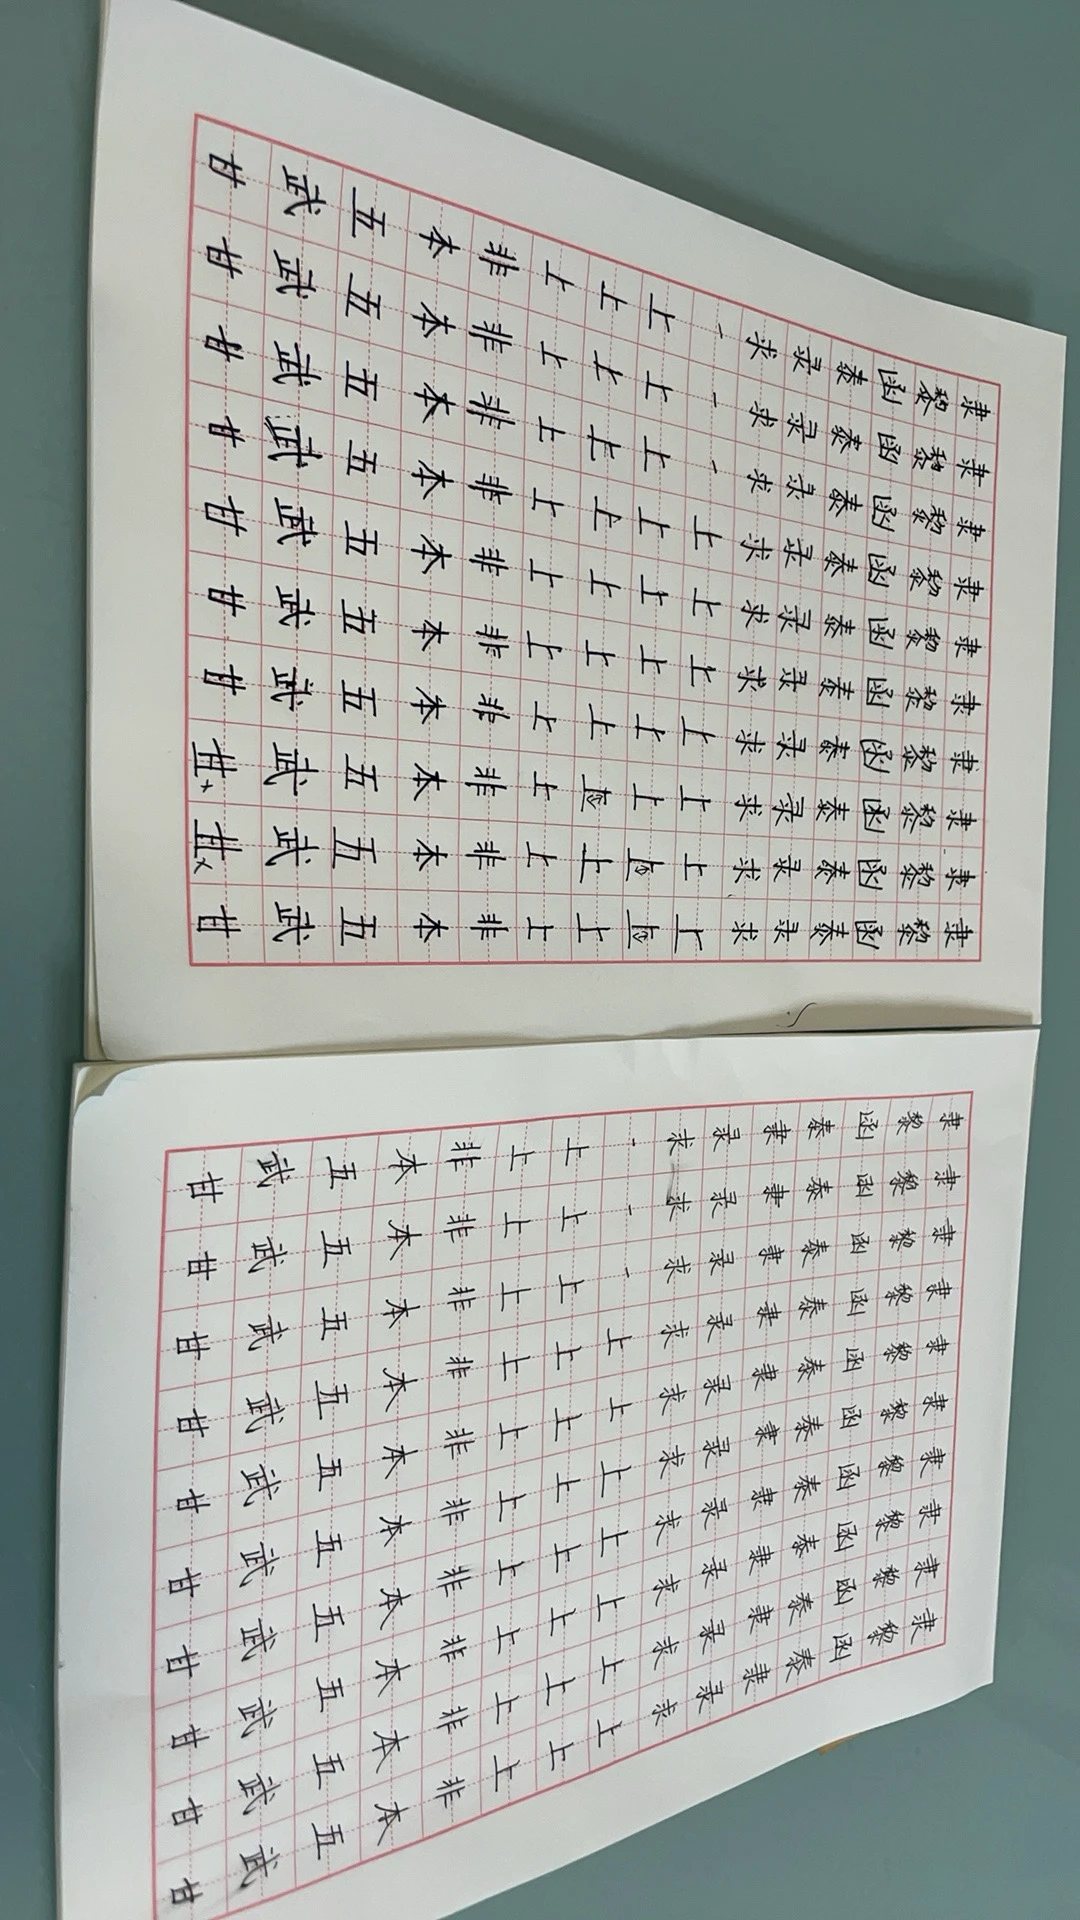 隶隶隶隶隶隶隶隶隶隶
黎黎黎黎黎黎黎黎黎黎
函函函函函函函函函函
泰泰泰泰泰泰泰泰泰泰
录录录录录录录录录录
求求求求求求求求求求
一一一上上上上上上上
上上上上上上上上
上上上上上上上上上
上上上上上上上上上上
非非非非非非非非非非
本本本本本本本本本本
五五五五五五五五五五
武武武武武武武武武武
甘甘甘甘甘甘甘甘
隶隶隶隶隶隶隶隶隶隶
黎黎黎黎黎黎黎黎黎黎
函函函函函函函函函函
泰泰泰泰泰泰泰泰泰泰
隶隶隶隶隶隶隶隶隶隶
录录录录录录录录录录
求求求求求求求求求求
一一一上上上上上上上
上上上上上上上上上上
上上上上上上上上上上
非非非非非非非非非非
本本本本本本本本本本
五五五五五五五五五五
武武武武武武武武武武
甘甘甘甘甘甘甘甘甘甘